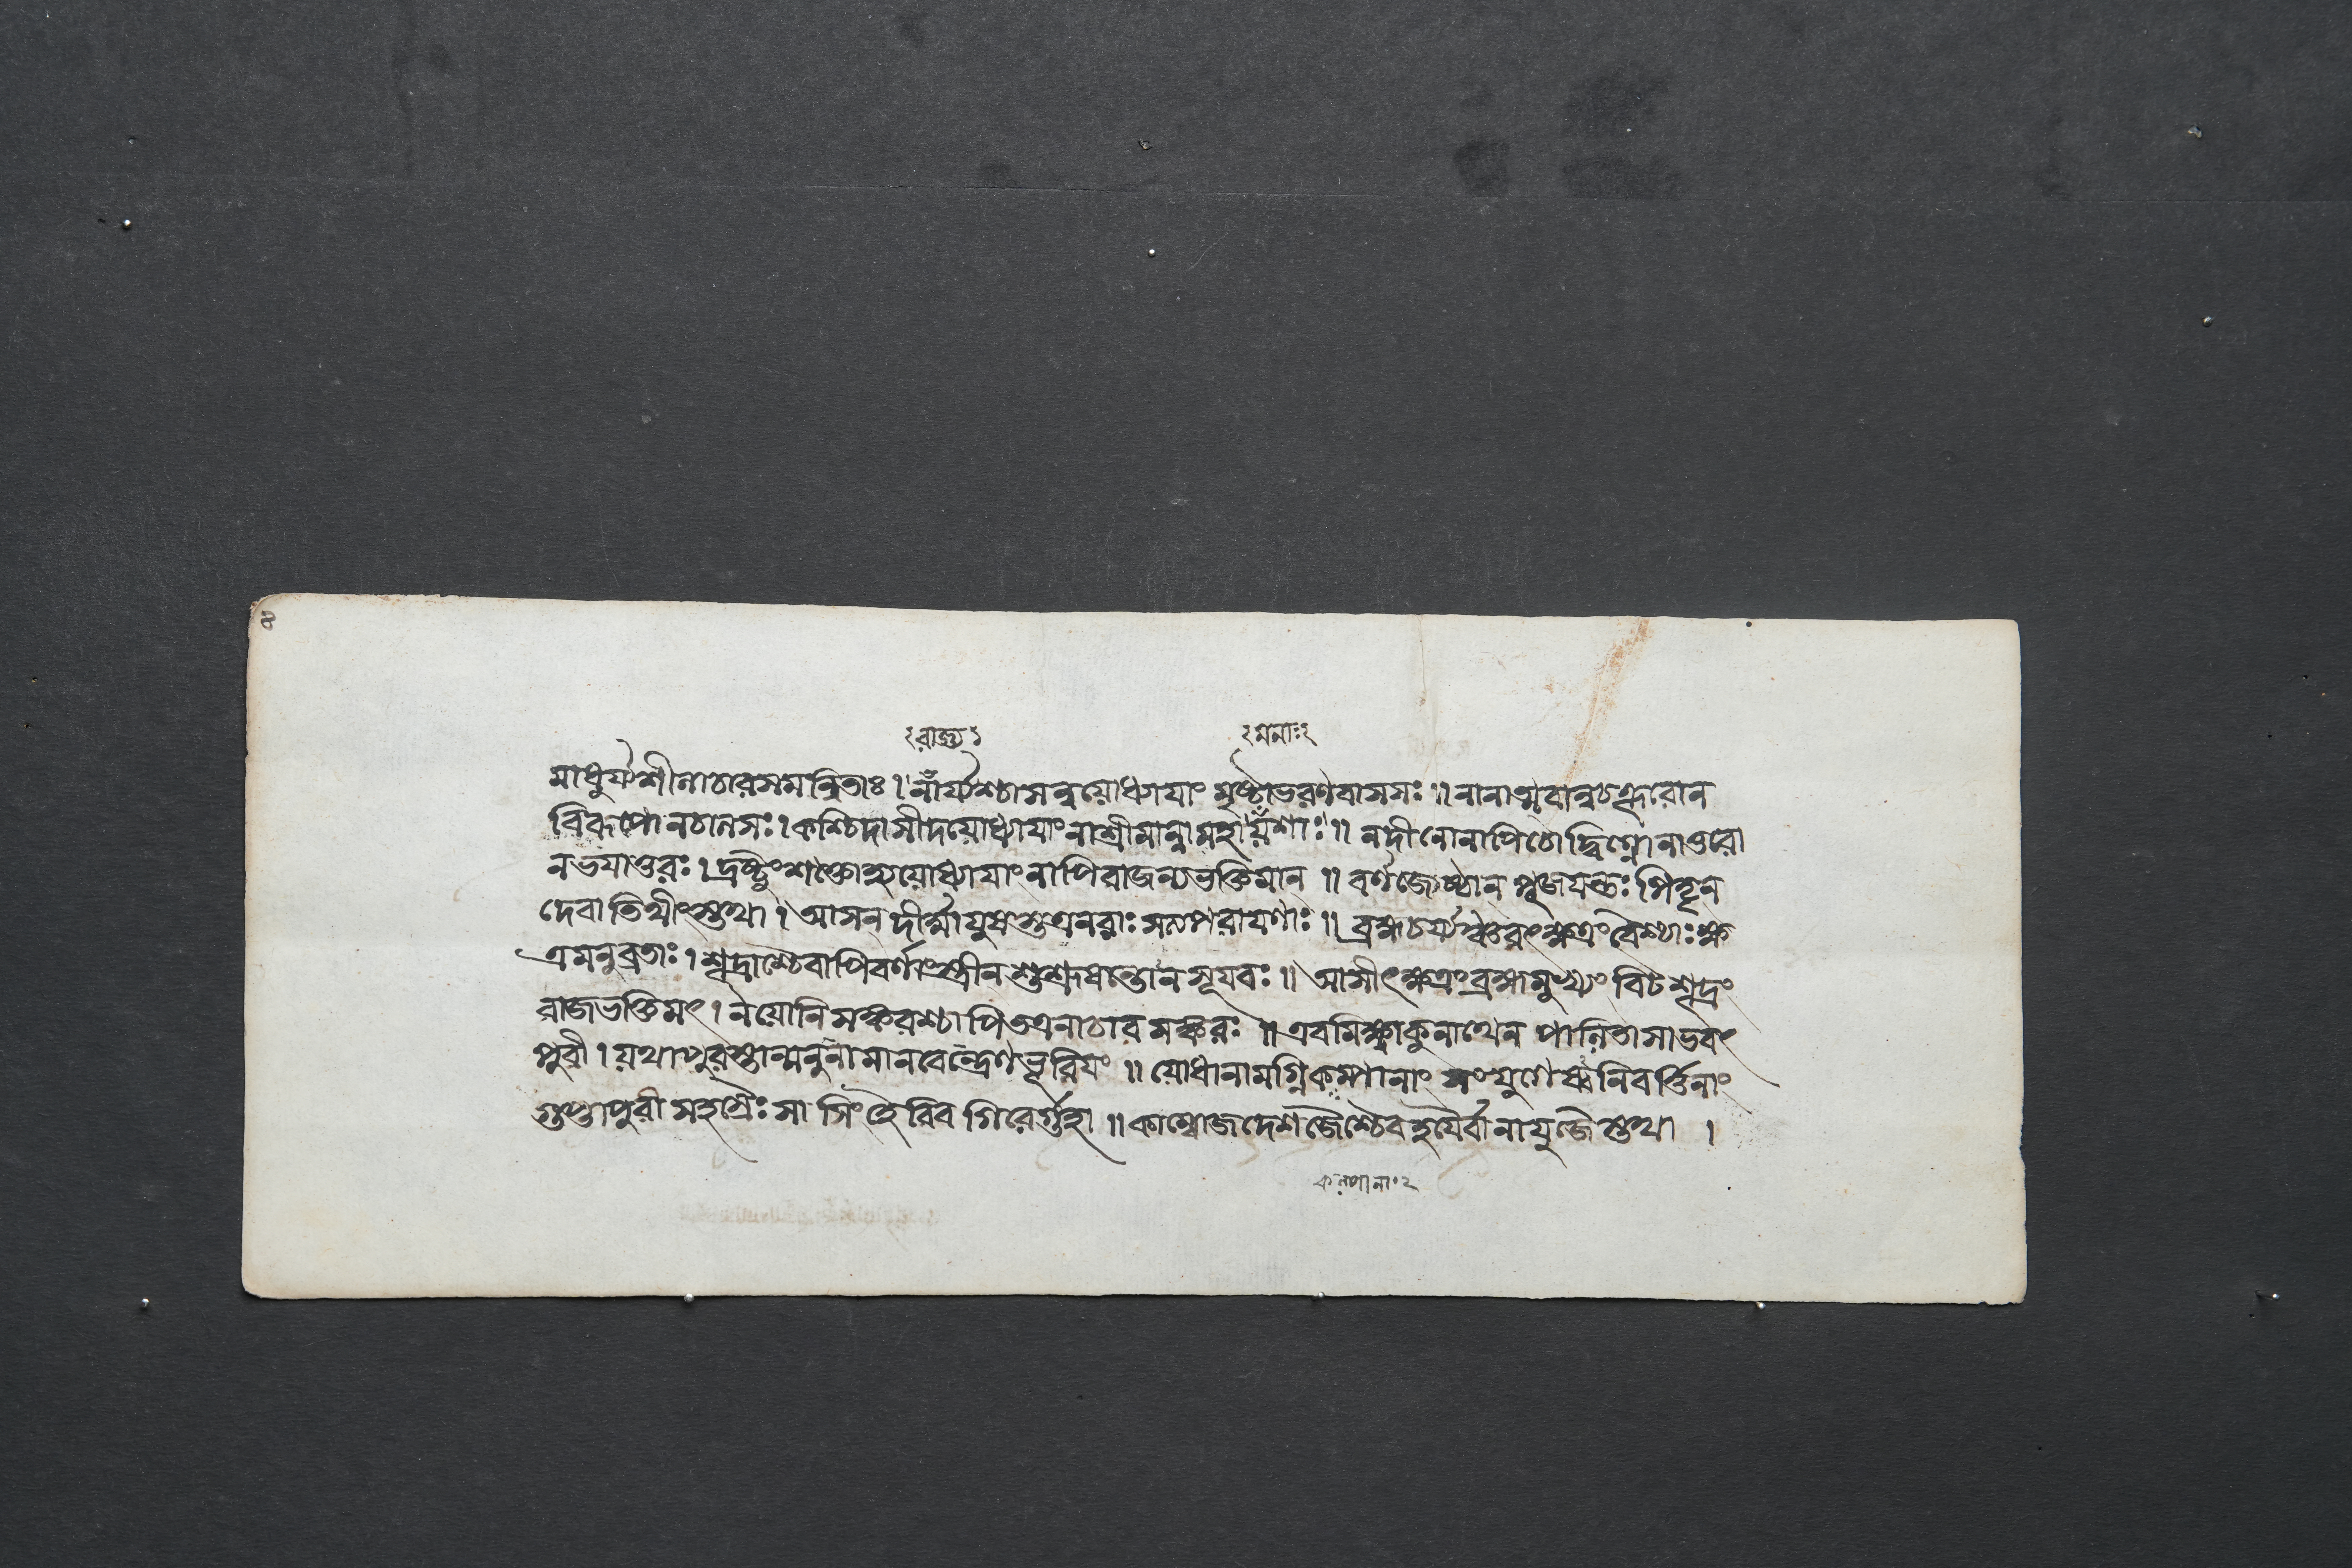 ৪
রাজ্য ২মনাঃ২
মাধুর্য্যশীলাচারসমন্বিতাঃ। নার্য্যশ্চাসন্নযোধ্যাযাং মৃষ্টাভরণবাসসঃ॥ নানাত্মবান্নচাল্পরোন
বিরূপোনচালসঃ। কশ্চিদাসীদযোধ্যাযাংনাশ্রীমান্নামহাযশাঃ॥ নদীনোনাপিচোদ্বিগ্নোনাতুরো
নভযাতুরঃ। দ্রষ্টুংশক্তোহ্যযোধ্যাযাংনাপিরাজন্যভক্তিমান॥ বর্ণজ্যেষ্ঠান পূজযন্তঃ পিতৄন
দেবাতিথীংস্তথা। আসন দীর্ঘাযুষস্তত্রনরাঃ সত্যপরাযণাঃ॥ ব্রহ্মচর্য্যঞ্চরৎক্ষত্রংবৈশ্যাঃক্ষ
ত্রমনুব্রতাঃ। শূদ্রাশ্চৈবাপিবর্ণাংস্ত্রীন শুশ্রূষন্তোনসূযবঃ॥ আসীৎক্ষত্রংব্রহ্মমুখ্যং বিট শূদ্রং
রাজভক্তিমৎ। নযোনিসঙ্করশ্চাপিতত্রনাচারসঙ্করঃ॥ এবমিক্ষ্বাকুনাথেন পালিতাসাভবৎ
পুরী। যথাপুরস্তান্মনুনামানবেন্দ্রেণভূরিযং॥ যোধানামগ্নিকল্পানাং সংযুগেষ্বনিবর্ত্তিনাং
গুপ্তাপুরী সহস্রৈঃ সা সিংহৈরিব গিরের্গুহা॥ কাম্বোজদেশজৈশ্চৈবহযৈর্বানাযুজৈস্তথা।